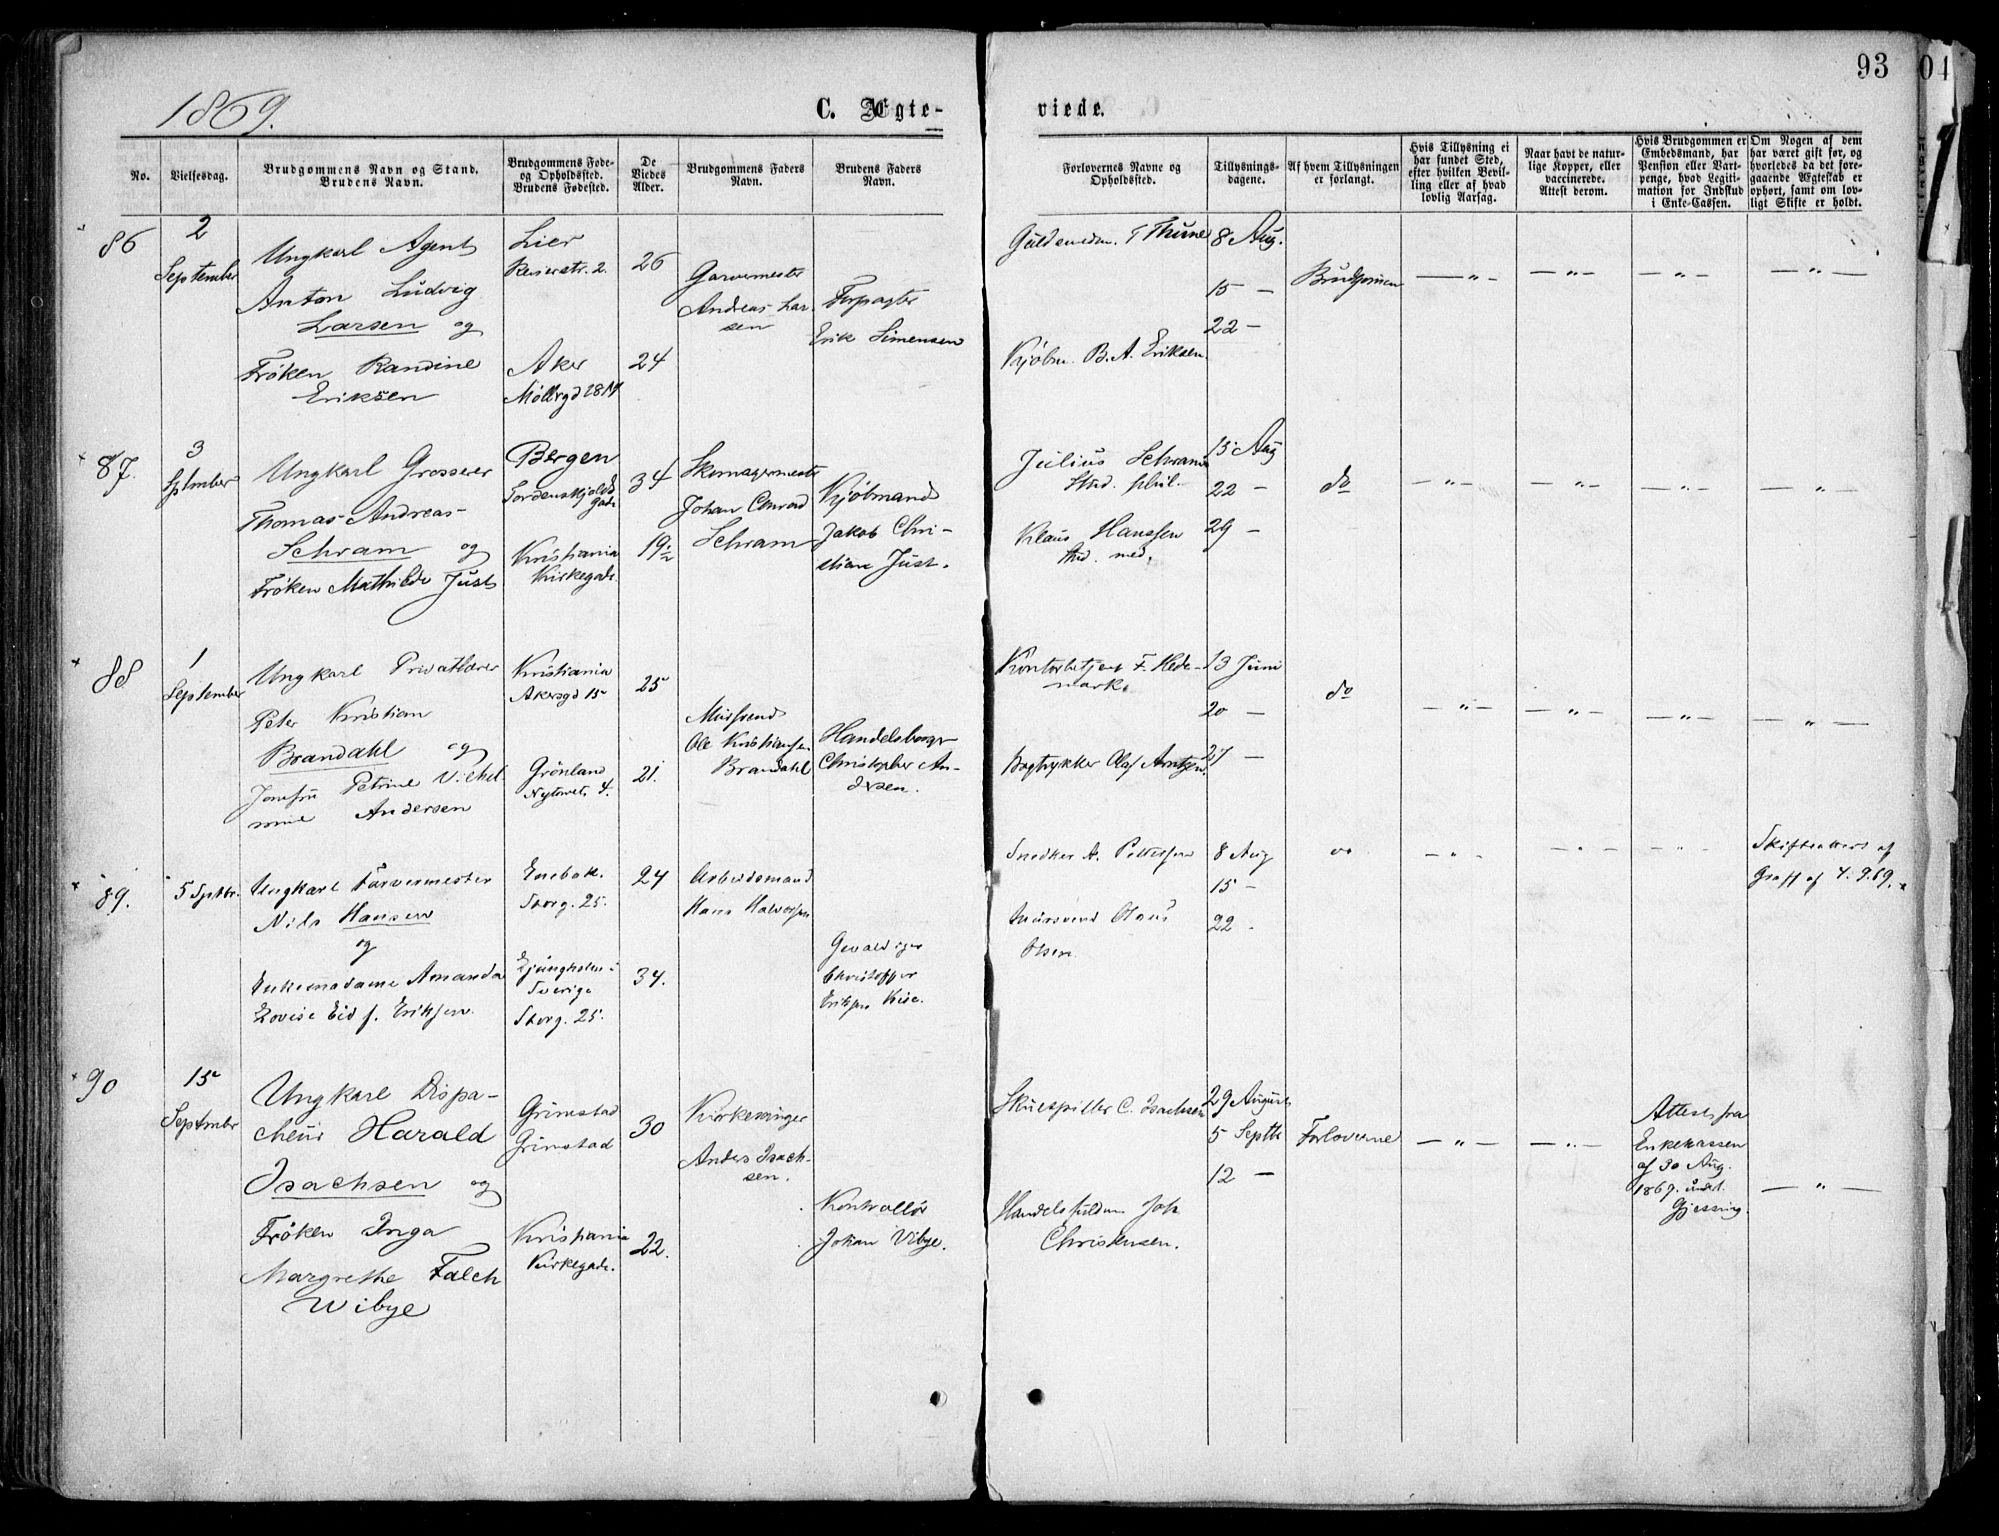 93
04
1869.
C. Ægte-
viede.
No.
Vielsesdag.
Brudgommens Navn og Stand.
Brudens Navn.
Brudgommens Føde-
og Opholdssted.
Brudens Fødested.
De
Viedes
Alder.
Brudgommens Faders
Navn.
Brudens Faders
Navn.
Forlovernes Navne og
Opholdssted.
Tillysnings-
dagene.
Af hvem Tillysningen
er forlangt.
Hvis Tillysning ei
har fundet Sted,
efter hvilken Bevil-
ling eller af hvad
lovlig Aarsag.
Naar havt de natur-
lige Kopper, eller
vaccinerede.
Attest derom.
Hvis Brudgommen er
Embedsmand, har
Pension eller Vart-
penge, hvod Legiti-
mation for Indskud
i Enke-Cassen.
Om Nogen af dem
har været gift før, og
hvorledes da det fore-
gaaende Ægteskab er
ophørt, samt om lov-
ligt Skifte er holdt.
86
2
September
Ungkarl Agent
Anton Ludvig
Larsen og
Frøken Randine
Eriksen
Lier
Revierstr. 2.
Aker
Møllergd 28
26
24
Garvermester
Andreas Lar-
sen
Forpagter
Erik Simensen
Guldsmedm. T Thune
Kjøbm. B. A. Eriksen
8 Aug.
15 —
22 —
Brudgommen
— " —
— " —
— " —
— " —
87.
3
September
Ungkarl Grosserer
Thomas Andreas
Schram og
Frøken Mathilde Just
Bergen
Tordenskjolds
Gade
Kristiania
Kirkegade
34
19 1/2
Skomagermester
Johan Conrad
Schram
Kjøbmand
Jakob Chri-
stian Just.
Julius Schram
Stud. phil.
Klaus Hanssen
stud. med.
15 Aug
22 —
29 —
do
— " —
— " —
— " —
— " —
88
1
September
Ungkarl Privatlærer
Peter Kristian
Brandahl og
Jomfru Petrine Vilhel
mine Andersen
Kristiania
Akersgd 15
Grønland
Nytorvet 4.
25
21.
Mursvend
Ole Kristiansen
Brandahl
Handelsborger
Christopher An-
dersen.
Kontorbetjent F. Hede-
mark.
Bogtrykker Olaf Arntzen
13 Juni
20 —
27 —
do
— " —
— " —
— " —
— " —
89.
5 Septbr.
Ungkarl Farvermester
Nils Hansen
og
Enkemadame Amanda
Lovise Eid f. Eriksen
Enebak.
Storg. 25.
Ljungholm i
Sverige
Storg. 25.
24
34.
Arbeidsmand
Hans Halvorsen
Gevaldiger
Christopher
Eriksen
Snedker A. Pettersen
Mursvend Olaus
Olsen.
8 Aug
15 —
22 -
do
— " —
— " —
— " —
Skifteattest af
Graff af 4. 9. 69.
90
15
September
Ungkarl Dispa-
cheur Harald
Isachsen og
Frøken Inga
Margrethe Falch
Wibye
Grimstad
Grimstad
Kristiania
Kirkegade.
30
22.
Kirkeværger
Anders Isach-
sen.
Kontrollør
Johan Vibye.
Skuespiller C. Isachsen
Handelsfuldm. Joh
Christensen.
29 August
5 Septbr
12 —
Forloverne
— " —
— " —
Attest fra
Enkekassen
af 30 Aug.
1869. undt.
Gjessing.
— " —